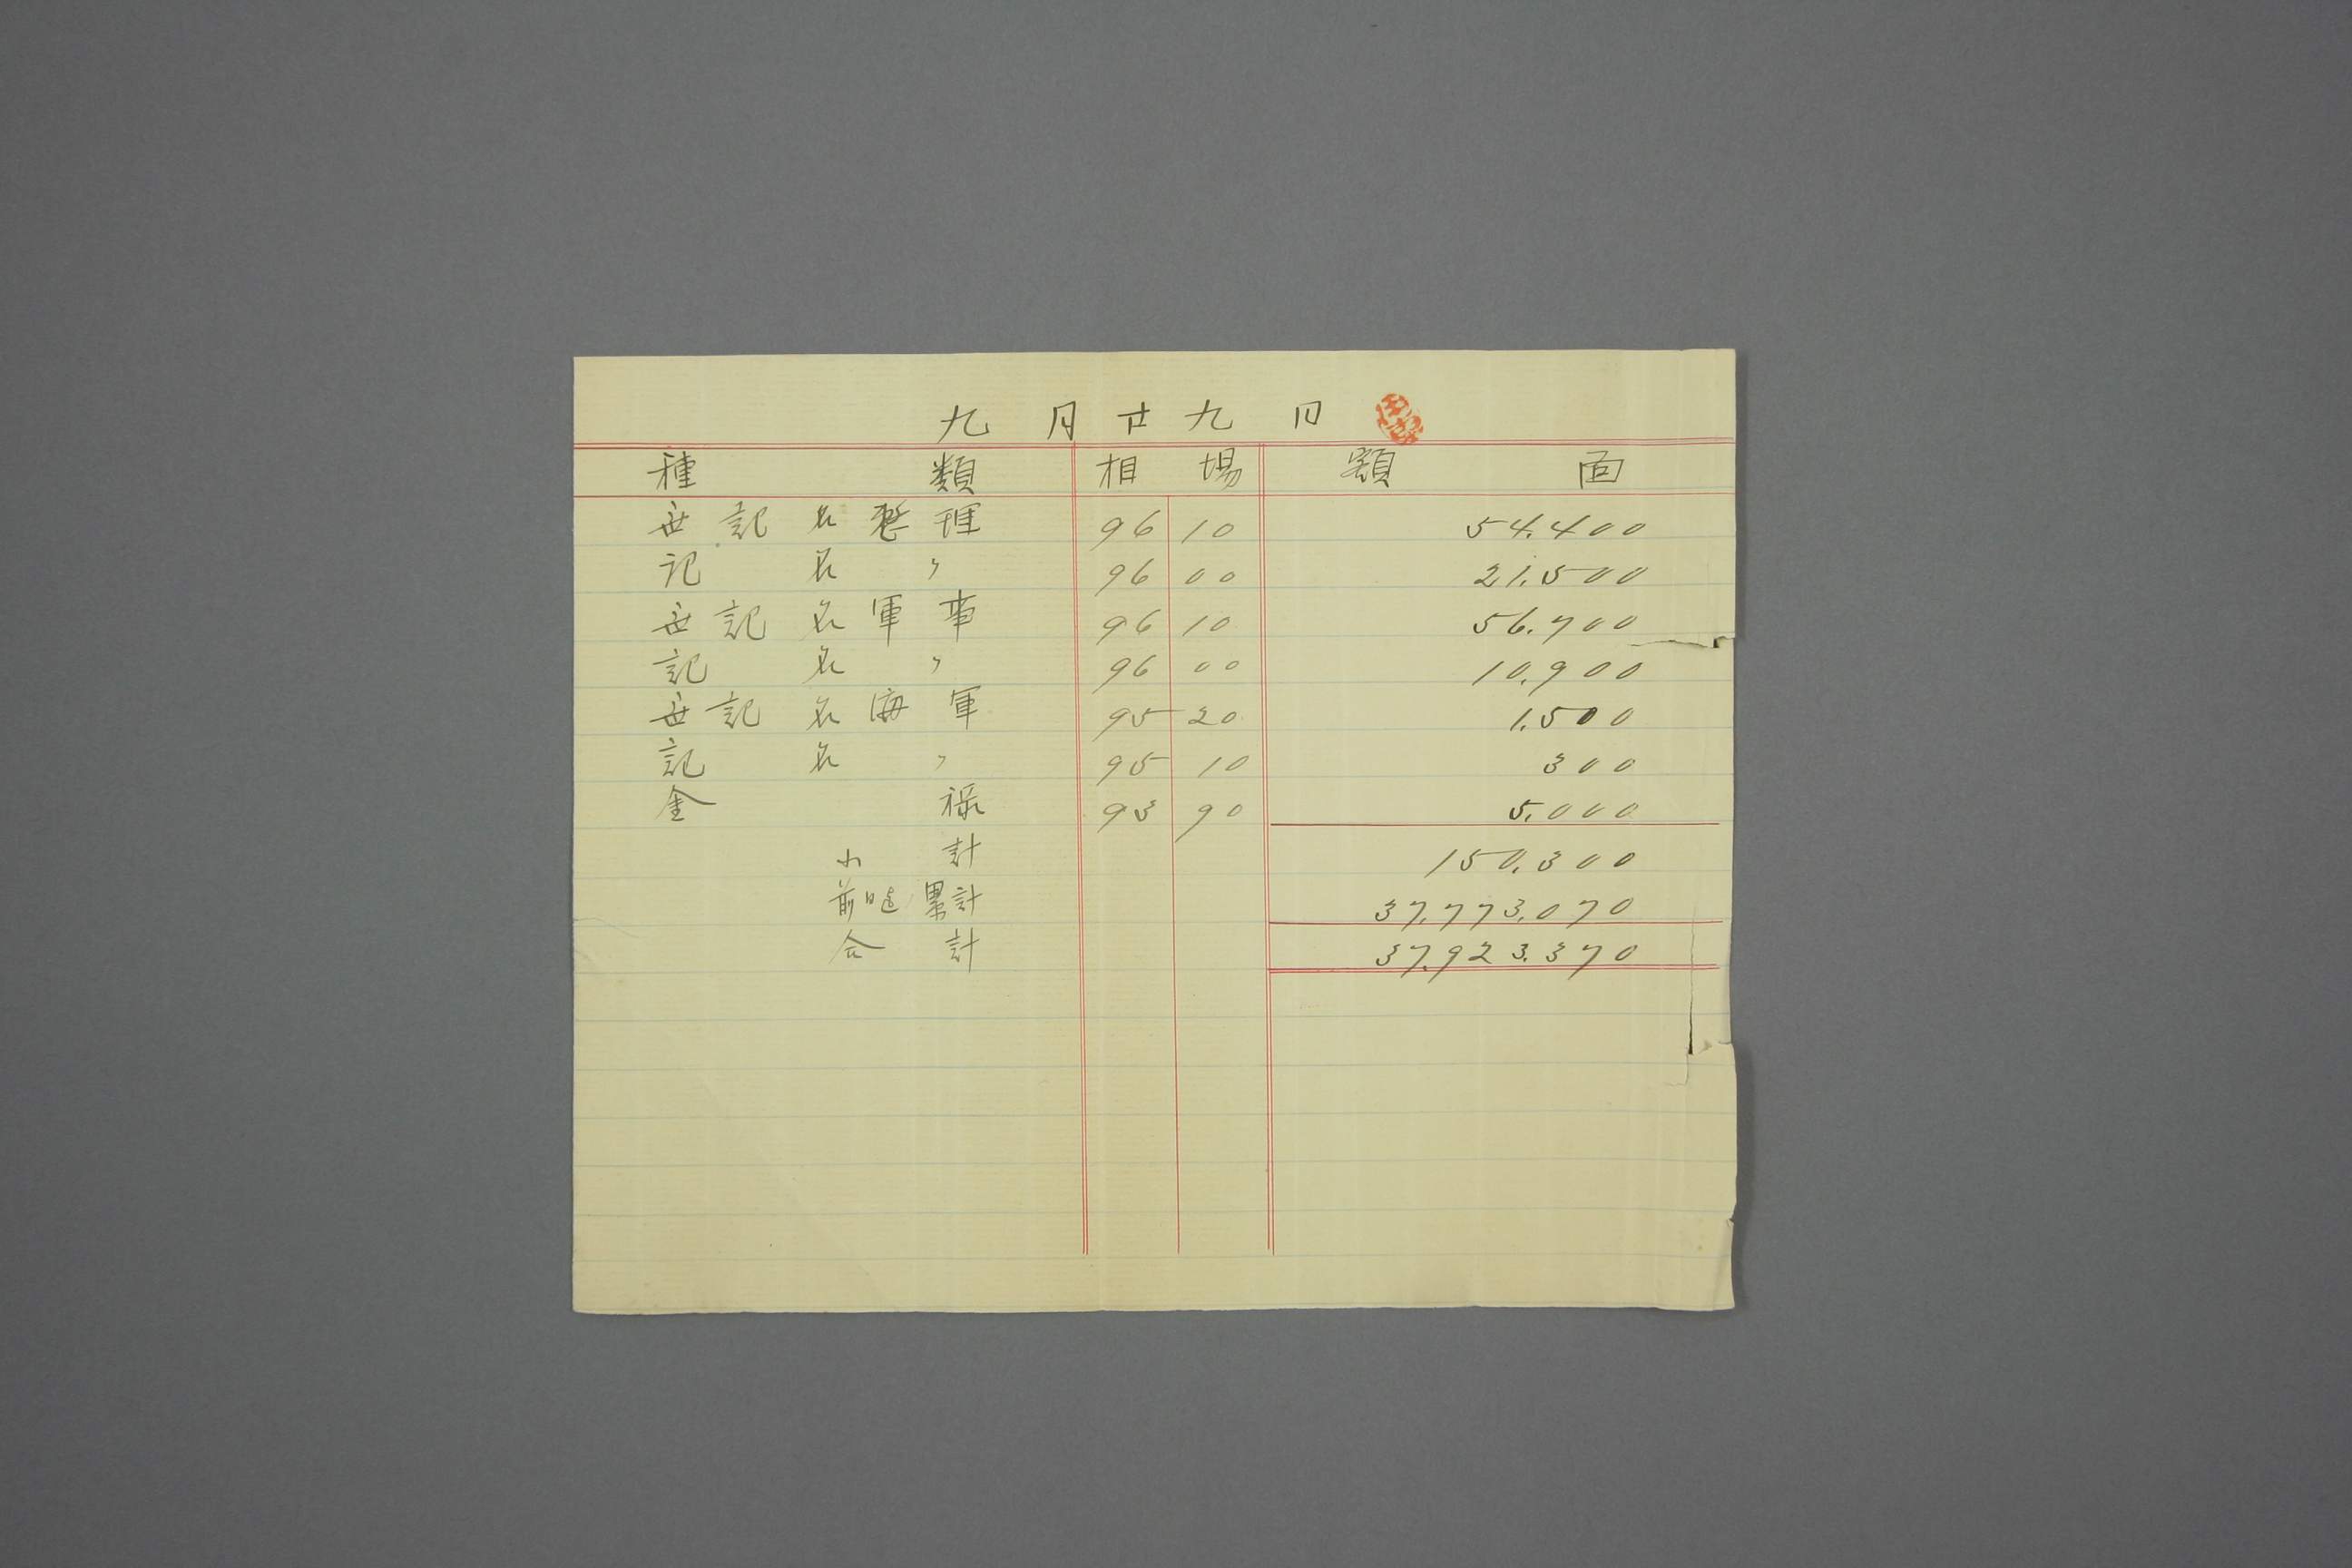 九月廿九日
種類 相場 額面
無記名整理 96 10 54.400
記名〃 96 00 21.500
無記名軍事 96 10 56.700
記名〃 96 00 10.900
無記名海軍 95 20 1.500
記名〃 95 10 300
金禄 93 90 5.000
小計 150.300
前日迠累計 37.773.070
合計 37.923.370